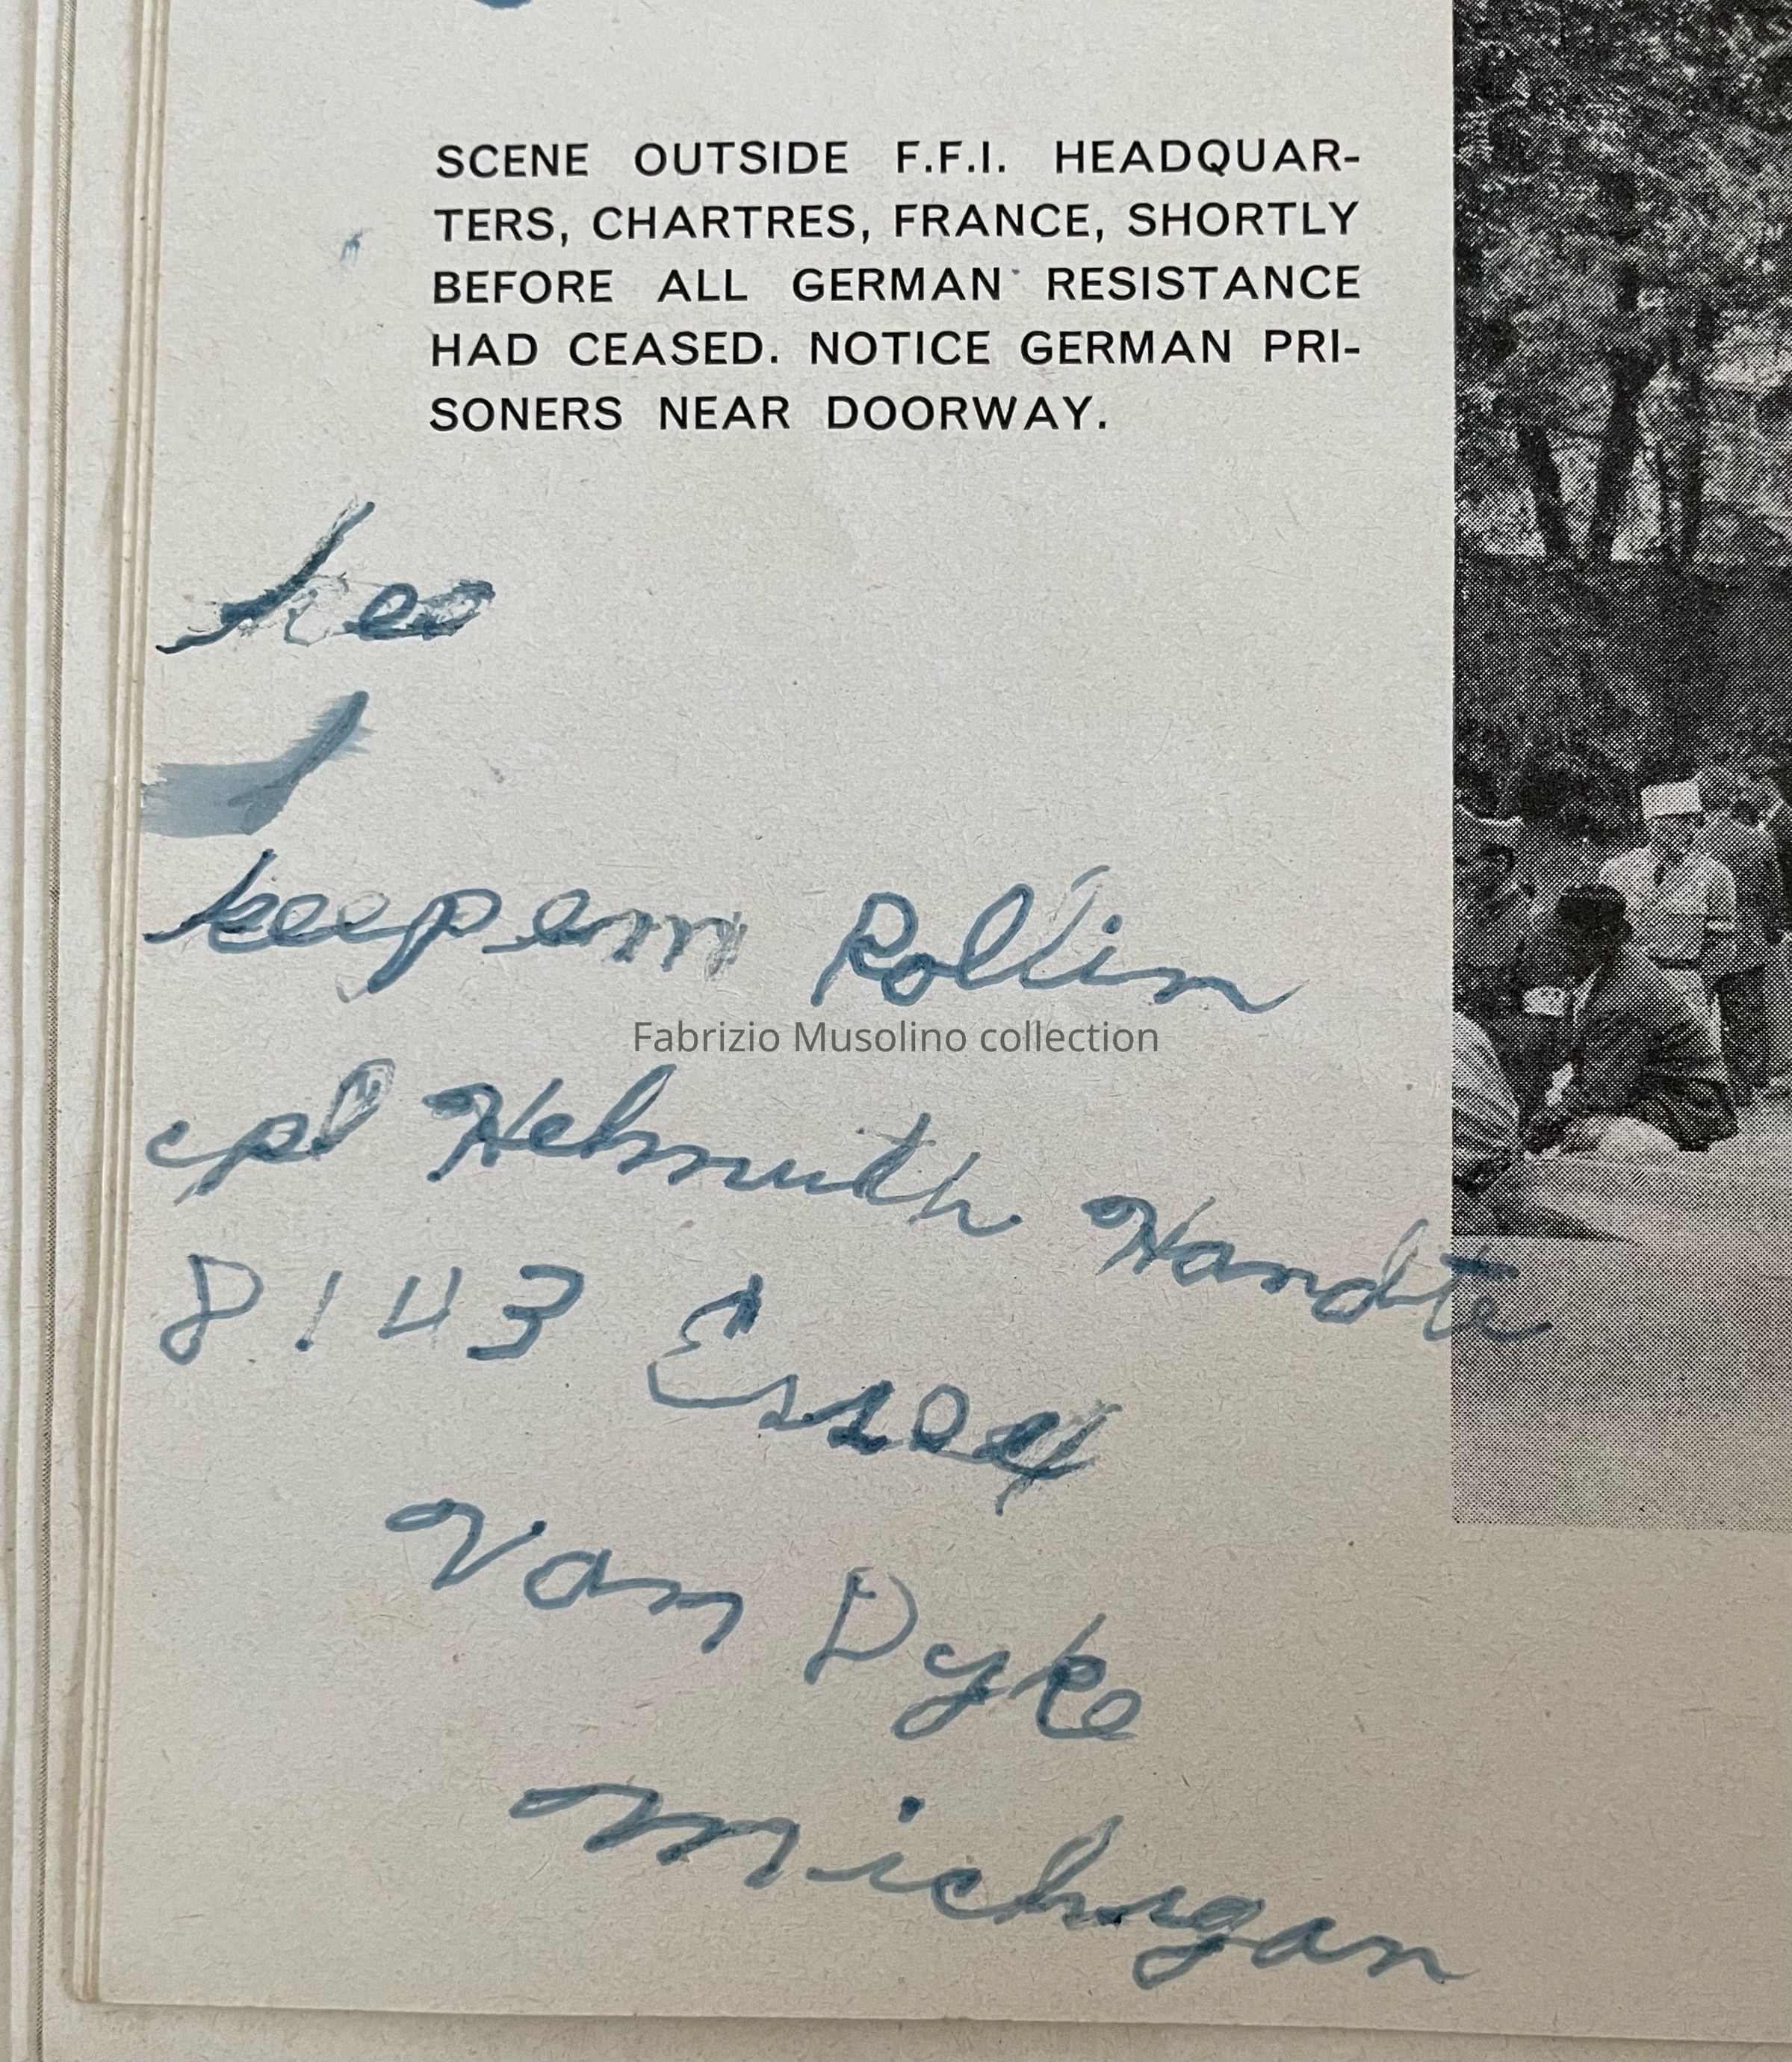 SCENE OUTSIDE F.F.I. HEADQUAR-
TERS, CHARTRES, FRANCE, SHORTLY
BEFORE ALL GERMAN RESISTANCE
HAD CEASED. NOTICE GERMAN PRI-
SONERS NEAR DOORWAY.
keep em Rollin
Fabrizio Musolino collection
cpl Helmuth Handte
8143 Essex
Van Dyke
Michigan